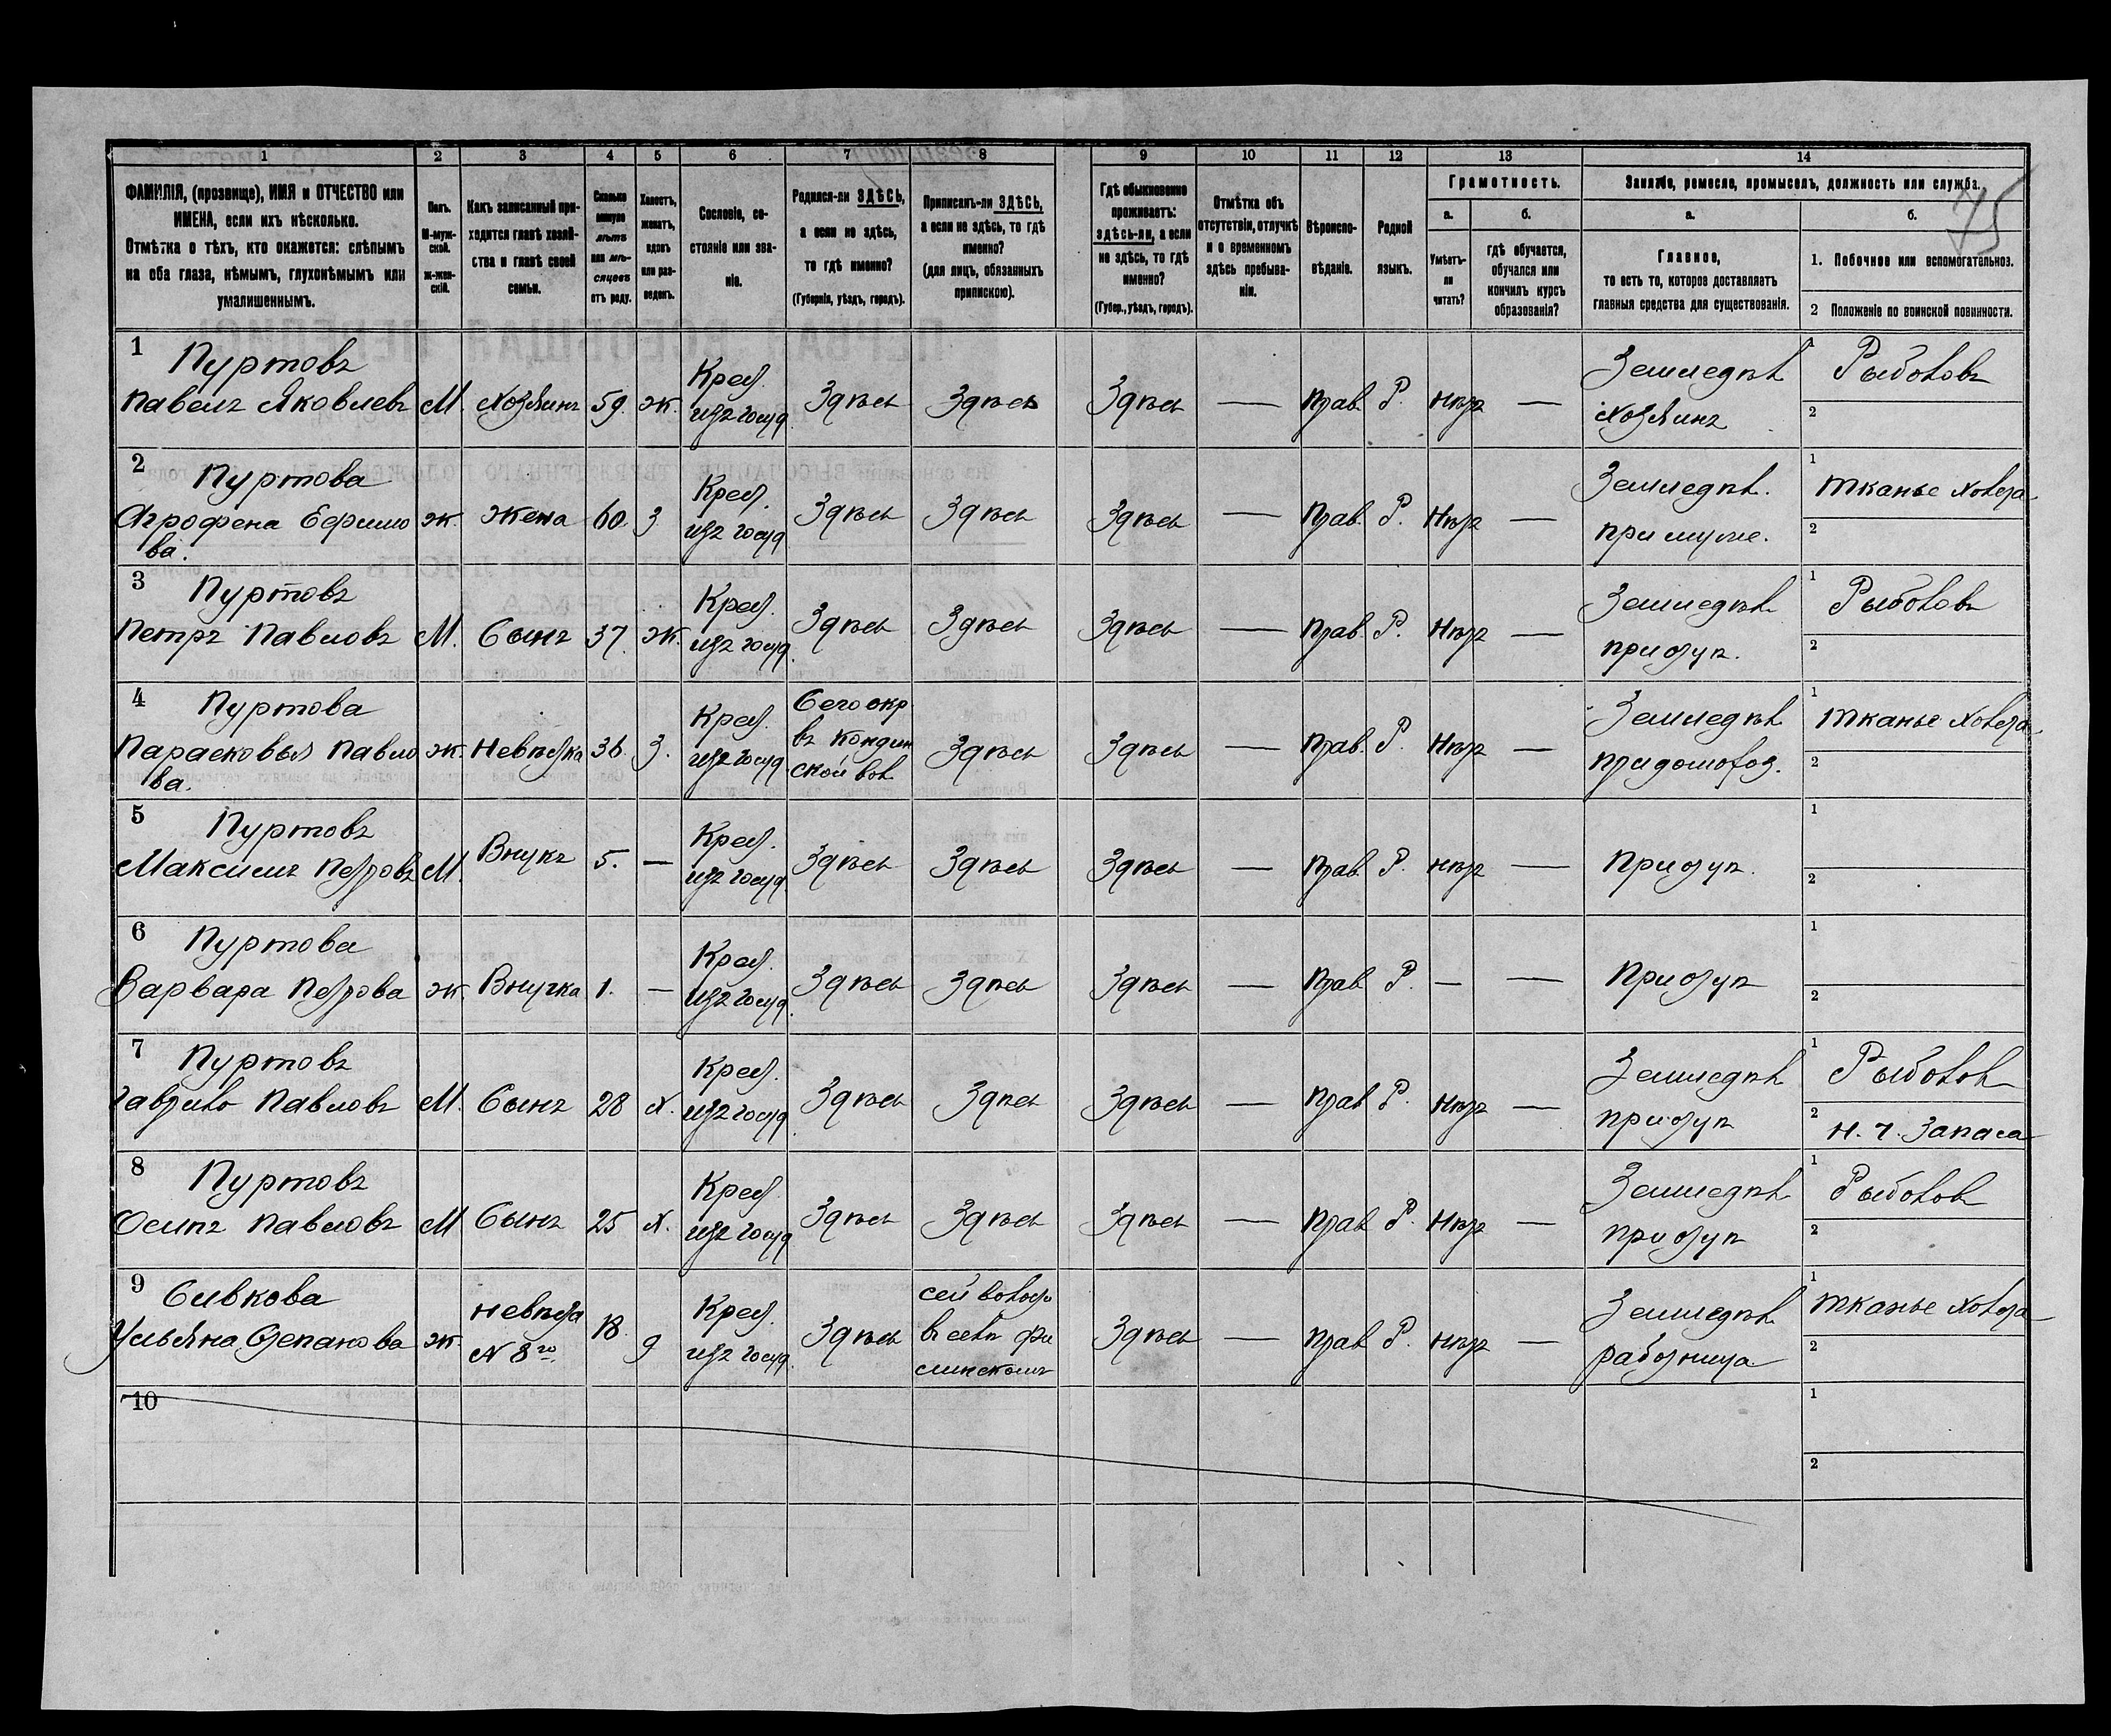 1 2 3 4 5 6 7 8 9 10 11 12 13 14
75
ФАМИЛІЯ, (прозвище), ИМЯ и ОТЧЕСТВО или
ИМЕНА, если ихъ нѣсколько.
Отмѣтка о тѣхъ, кто окажется: слѣпымъ
на оба глаза, нѣмымъ, глухонѣмымъ или
умалишеннымъ.
Полъ.
М-муж-
ской.
Ж-жен-
скій.
Какъ записанный при-
ходится главѣ хозяй-
ства и главѣ своей
семьи.
Сколько
минуло
лѣтъ
или мѣ-
сяцевъ
отъ роду.
Холостъ,
женатъ,
вдовъ
или раз-
веденъ.
Сословіе, со-
стояніе или зва-
ніе.
Родился-ли ЗДѢСЬ,
а если не здѣсь,
то гдѣ именно?
(Губернія, уѣздъ, городъ).
Приписанъ-ли ЗДѢСЬ,
а если не здѣсь, то гдѣ
именно?
(для лицъ, обязанныхъ
припискою).
Гдѣ обыкновенно
проживаетъ:
здѣсь-ли, а если
не здѣсь, то гдѣ
именно?
(Губер., уѣздъ, городъ).
Отмѣтка объ
отсутствіи, отлучкѣ
и о временномъ
здѣсь пребыва-
ніи.
Вѣроиспо-
вѣданіе.
Родной
языкъ.
Грамотность.
а.
Умѣетъ-
ли
читать?
б.
гдѣ обучается,
обучался или
кончилъ курсъ
образованія?
Занятіе, ремесло, промыселъ, должность или служба.
а.
Главное,
то есть то, которое доставляетъ
главныя средства для существованія.
б.
1. Побочное или вспомогательное.
2 Положеніе по воинской повинности.
1 Пуртовъ
Павелъ Яковлевъ М. Хозяинъ 59. ж. Крест. изъ госуд. Здѣсь Здѣсь Здѣсь — Прав. Р. нѣтъ — Земледѣл. хозяинъ 1 Рыболовъ
2
2 Пуртова
Агрофена Ефимо
ва. ж. Жена 60. з. Крест. изъ госуд. Здѣсь Здѣсь Здѣсь — Прав. Р. Нѣтъ — Земледѣл. при муже. 1 Тканье холста
2
3 Пуртовъ
Петръ Павловъ М. Сынъ 37. ж. Крест. изъ госуд. Здѣсь Здѣсь Здѣсь — Прав. Р. Нѣтъ — Земледѣл. при отцѣ. 1 Рыболовъ
2
4 Пуртова
Парасковья Павло
ва. ж. Невѣстка 36. з. Крест. изъ госуд. Сего окр
въ Кондин
ской вол Здѣсь Здѣсь — Прав. Р. Нѣтъ — Земледѣл 1 Тканье холста
2
5 Пуртовъ
Максимъ Петровъ М. Внукъ 5. — Крест. изъ госуд. Здѣсь Здѣсь Здѣсь — Прав. Р. нѣтъ — При отцѣ. 1
2
6 Пуртова
Варвара Петрова ж. Внучка 1. — Крест. изъ госуд. Здѣсь Здѣсь Здѣсь — Прав. Р. — — При отцѣ 1
2
7 Пуртовъ
Гаврило Павловъ М. Сынъ 28 х. Крест. изъ госуд. Здѣсь Здѣсь Здѣсь — Прав. Р. нѣтъ — Земледѣл при отцѣ 1 Рыболов
2 н. ч. запаса
8 Пуртовъ
Осипъ Павловъ М Сынъ 25 х. Крест. изъ госуд. Здѣсь Здѣсь Здѣсь — Прав. Р. Нѣтъ — Земледѣл при отцѣ 1 Рыболов
2
9 Сивкова
Ульяна Степанова ж. невѣста
№ 8го. 18. д Крест. изъ госуд. Здѣсь сей волости
в селѣ Фи
линскомъ Здѣсь — Прав. Р. нѣтъ — Земледѣл. работница 1 Тканье холста
2
10
1
2